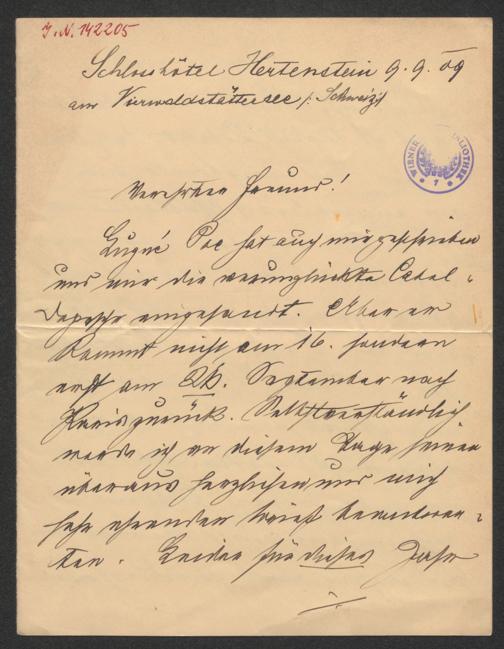 J.N. 142205
Schlosshôtel Hertenstein 9.9.09
am Vierwaldstättersee /: Schweiz :/
WIENER BIBLIOTHEK
Verehrter Freund!
Lugné Poe hat auch mir geschrieben
und mir die verunglückte Cadal-
Depesche eingesandt. Aber er
kommt nicht am 16. sondern
erst am 26. September nach
Paris zurück. Selbstverständlich
werde ich an diesem Tage seinen
überaus herzlichen und mich
sehr ehrenden Brief beantwor-
ten. Leider für dieses Jahr